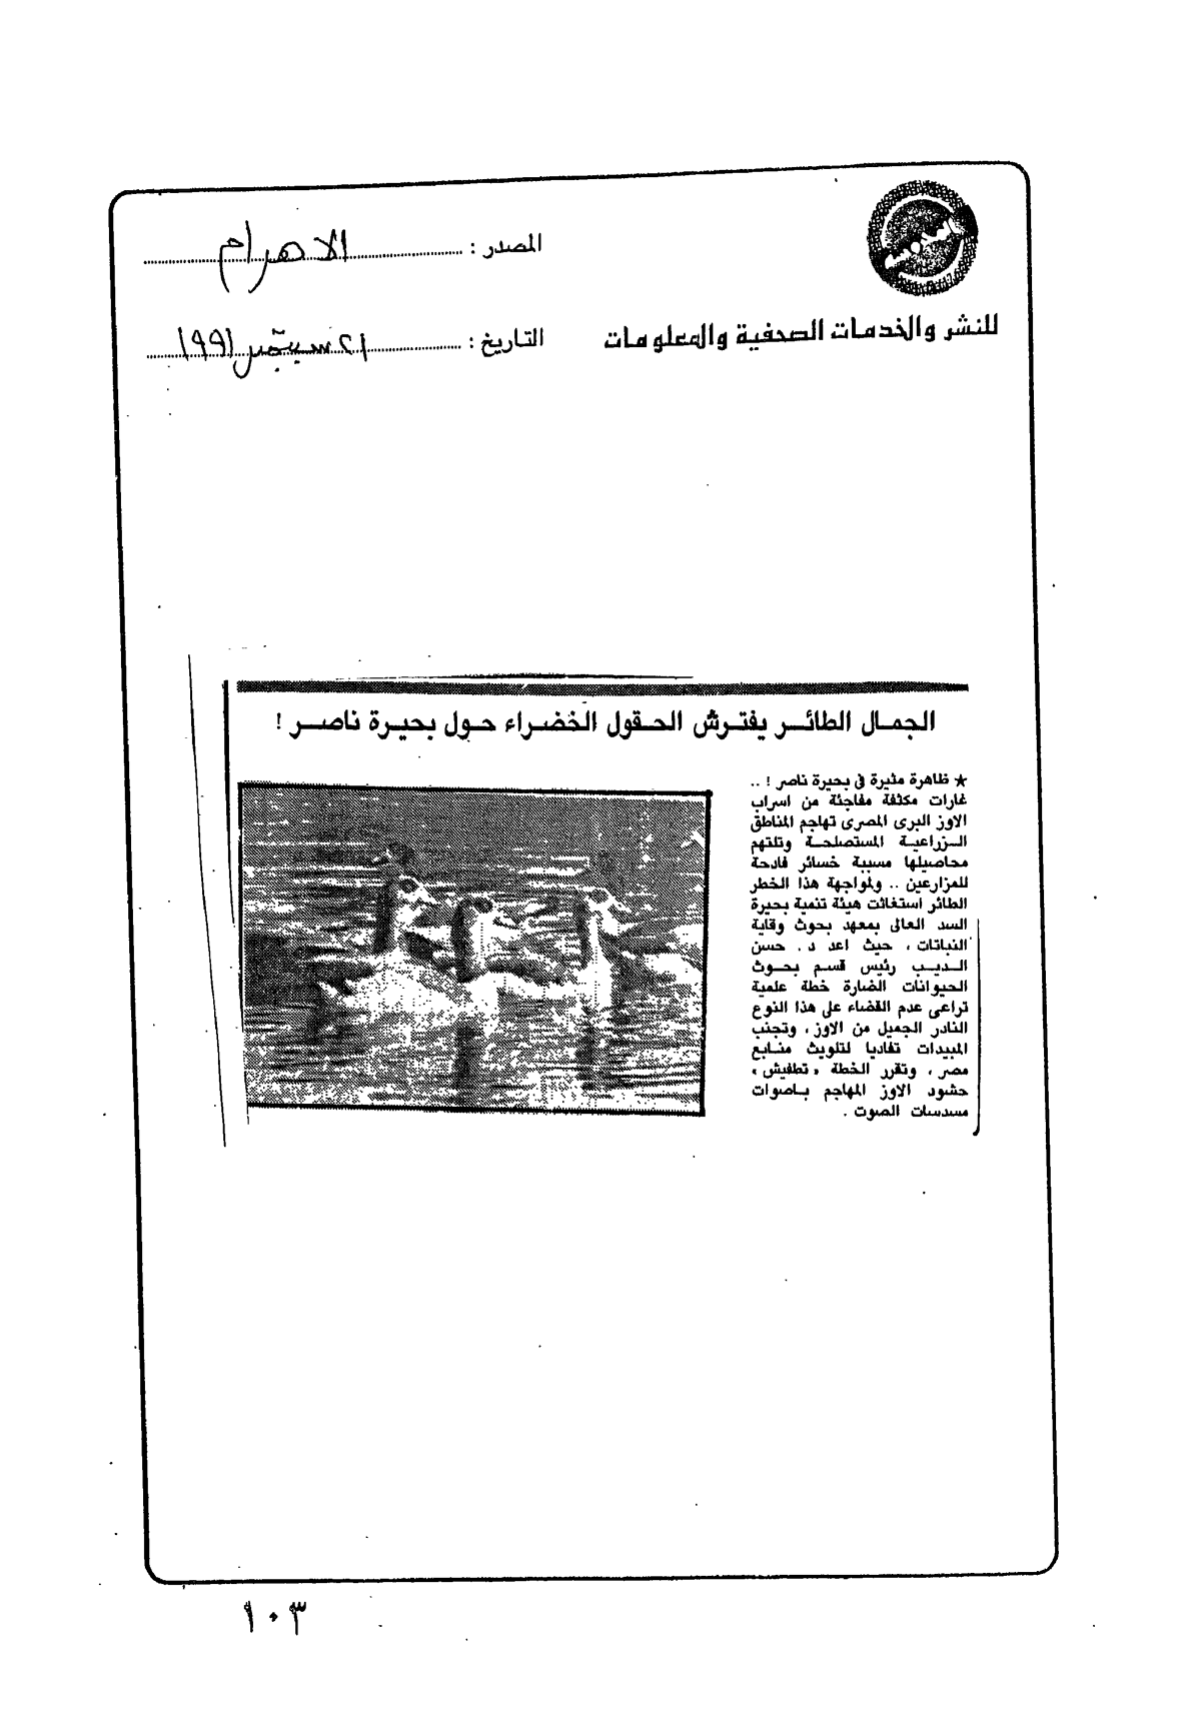 المصدر : الاهرام
للنشر والخدمات الصحفية والمعلومات
التاريخ : ٢١ سبتمبر ١٩٩١
الجمال الطائر يفترش الحقول الخضراء حول بحيرة ناصر !
★ ظاهرة مثيرة فى بحيرة ناصر ! ..
غارات مكثفة مفاجئة من اسراب
الاوز البرى المصرى تهاجم المناطق
الزراعية المستصلحة وتلتهم
محاصيلها مسببة خسائر فادحة
للمزارعين .. ولمواجهة هذا الخطر
الطائر استغاثت هيئة تنمية بحيرة
السد العالى بمعهد بحوث وقاية
النباتات ، حيث اعد د . حسن
الديب رئيس قسم بحوث
الحيوانات الضارة خطة علمية
تراعى عدم القضاء على هذا النوع
النادر الجميل من الاوز ، وتجنب
المبيدات تفاديا لتلويث منابع
مصر ، وتقرر الخطة « تطفيش »
حشود الاوز المهاجم باصوات
مسدسات الصوت .
١٠٣